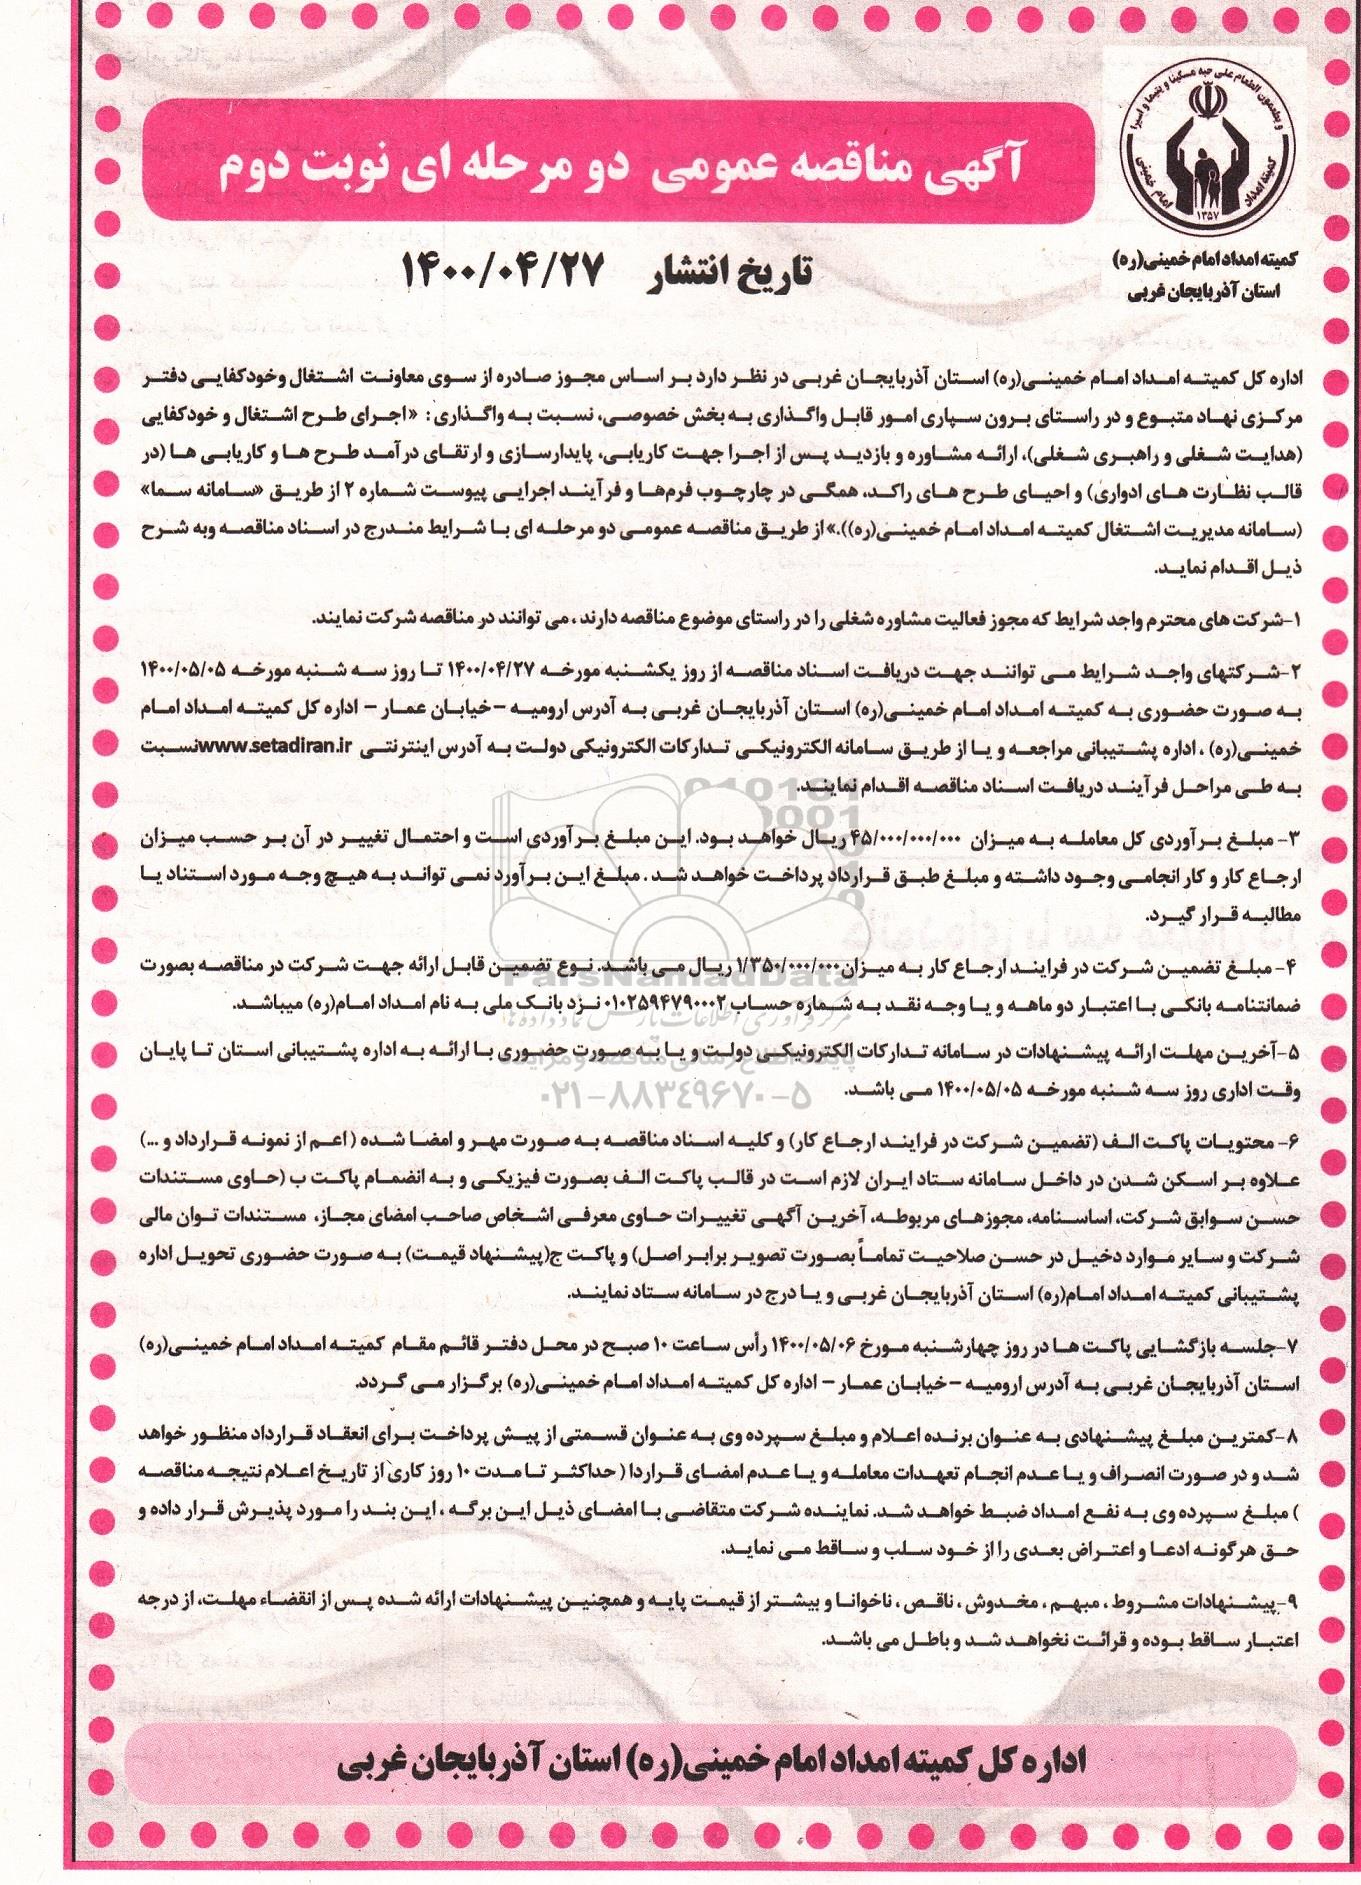 و یطعمون الطعام علی حبه مسکینا و یتیما و اسیرا
کمیته امداد امام خمینی
۱۳۵۷
کمیته امداد امام خمینی(ره)
استان آذربایجان غربی
آگهی مناقصه عمومی دو مرحله ای نوبت دوم
تاریخ انتشار ۱۴۰۰/۰۴/۲۷
اداره کل کمیته امداد امام خمینی(ره) استان آذربایجان غربی در نظر دارد بر اساس مجوز صادره از سوی معاونت اشتغال وخودکفایی دفتر
مرکزی نهاد متبوع و در راستای برون سپاری امور قابل واگذاری به بخش خصوصی، نسبت به واگذاری: «اجرای طرح اشتغال و خودکفایی
(هدایت شغلی و راهبری شغلی)، ارائه مشاوره و بازدید پس از اجرا جهت کاریابی، پایدارسازی و ارتقای درآمد طرح ها و کاریابی ها (در
قالب نظارت های ادواری) و احیای طرح های راکد، همگی در چارچوب فرم‌ها و فرآیند اجرایی پیوست شماره ۲ از طریق «سامانه سما»
(سامانه مدیریت اشتغال کمیته امداد امام خمینی(ره)).» از طریق مناقصه عمومی دو مرحله ای با شرایط مندرج در اسناد مناقصه وبه شرح
ذیل اقدام نماید.
۱-شرکت های محترم واجد شرایط که مجوز فعالیت مشاوره شغلی را در راستای موضوع مناقصه دارند ، می توانند در مناقصه شرکت نمایند.
۲-شرکتهای واجد شرایط می توانند جهت دریافت اسناد مناقصه از روز یکشنبه مورخه ۱۴۰۰/۰۴/۲۷ تا روز سه شنبه مورخه ۱۴۰۰/۰۵/۰۵
به صورت حضوری به کمیته امداد امام خمینی(ره) استان آذربایجان غربی به آدرس ارومیه –خیابان عمار – اداره کل کمیته امداد امام
خمینی(ره) ، اداره پشتیبانی مراجعه و یا از طریق سامانه الکترونیکی تدارکات الکترونیکی دولت به آدرس اینترنتی www.setadiran.irنسبت
به طی مراحل فرآیند دریافت اسناد مناقصه اقدام نمایند.
۳- مبلغ برآوردی کل معامله به میزان ۴۵/۰۰۰/۰۰۰/۰۰۰ ریال خواهد بود. این مبلغ برآوردی است و احتمال تغییر در آن بر حسب میزان
ارجاع کار و کار انجامی وجود داشته و مبلغ طبق قرارداد پرداخت خواهد شد . مبلغ این برآورد نمی تواند به هیچ وجه مورد استناد یا
مطالبه قرار گیرد.
۴- مبلغ تضمین شرکت در فرایند ارجاع کار به میزان ۱/۳۵۰/۰۰۰/۰۰۰ ریال می باشد. نوع تضمین قابل ارائه جهت شرکت در مناقصه بصورت
ضمانتنامه بانکی با اعتبار دو ماهه و یا وجه نقد به شماره حساب ۰۱۰۲۵۹۴۷۹۰۰۰۲ نزد بانک ملی به نام امداد امام(ره) میباشد.
۵-آخرین مهلت ارائه پیشنهادات در سامانه تدارکات الکترونیکی دولت و یا به صورت حضوری با ارائه به اداره پشتیبانی استان تا پایان
وقت اداری روز سه شنبه مورخه ۱۴۰۰/۰۵/۰۵ می باشد.
۶- محتویات پاکت الف (تضمین شرکت در فرایند ارجاع کار) و کلیه اسناد مناقصه به صورت مهر و امضا شده ( اعم از نمونه قرارداد و ...)
علاوه بر اسکن شدن در داخل سامانه ستاد ایران لازم است در قالب پاکت الف بصورت فیزیکی و به انضمام پاکت ب (حاوی مستندات
حسن سوابق شرکت، اساسنامه، مجوزهای مربوطه، آخرین آگهی تغییرات حاوی معرفی اشخاص صاحب امضای مجاز، مستندات توان مالی
شرکت و سایر موارد دخیل در حسن صلاحیت تماماً بصورت تصویر برابر اصل) و پاکت ج(پیشنهاد قیمت) به صورت حضوری تحویل اداره
پشتیبانی کمیته امداد امام(ره) استان آذربایجان غربی و یا درج در سامانه ستاد نمایند.
۷-جلسه بازگشایی پاکت ها در روز چهارشنبه مورخ ۱۴۰۰/۰۵/۰۶ رأس ساعت ۱۰ صبح در محل دفتر قائم مقام کمیته امداد امام خمینی(ره)
استان آذربایجان غربی به آدرس ارومیه –خیابان عمار – اداره کل کمیته امداد امام خمینی(ره) برگزار می گردد.
۸-کمترین مبلغ پیشنهادی به عنوان برنده اعلام و مبلغ سپرده وی به عنوان قسمتی از پیش پرداخت برای انعقاد قرارداد منظور خواهد
شد و در صورت انصراف و یا عدم انجام تعهدات معامله و یا عدم امضای قراردا ( حداکثر تا مدت ۱۰ روز کاری از تاریخ اعلام نتیجه مناقصه
) مبلغ سپرده وی به نفع امداد ضبط خواهد شد. نماینده شرکت متقاضی با امضای ذیل این برگه ، این بند را مورد پذیرش قرار داده و
حق هرگونه ادعا و اعتراض بعدی را از خود سلب و ساقط می نماید.
۹-پیشنهادات مشروط ، مبهم ، مخدوش ، ناقص ، ناخوانا و بیشتر از قیمت پایه و همچنین پیشنهادات ارائه شده پس از انقضاء مهلت، از درجه
اعتبار ساقط بوده و قرائت نخواهد شد و باطل می باشد.
اداره کل کمیته امداد امام خمینی(ره) استان آذربایجان غربی
ParsNamadData
مرکز فرآوری اطلاعات پارس نماد داده ها
پایگاه اطلاع رسانی مناقصه و مزایده
۰۲۱-۸۸۳۴۹۶۷۰-۵